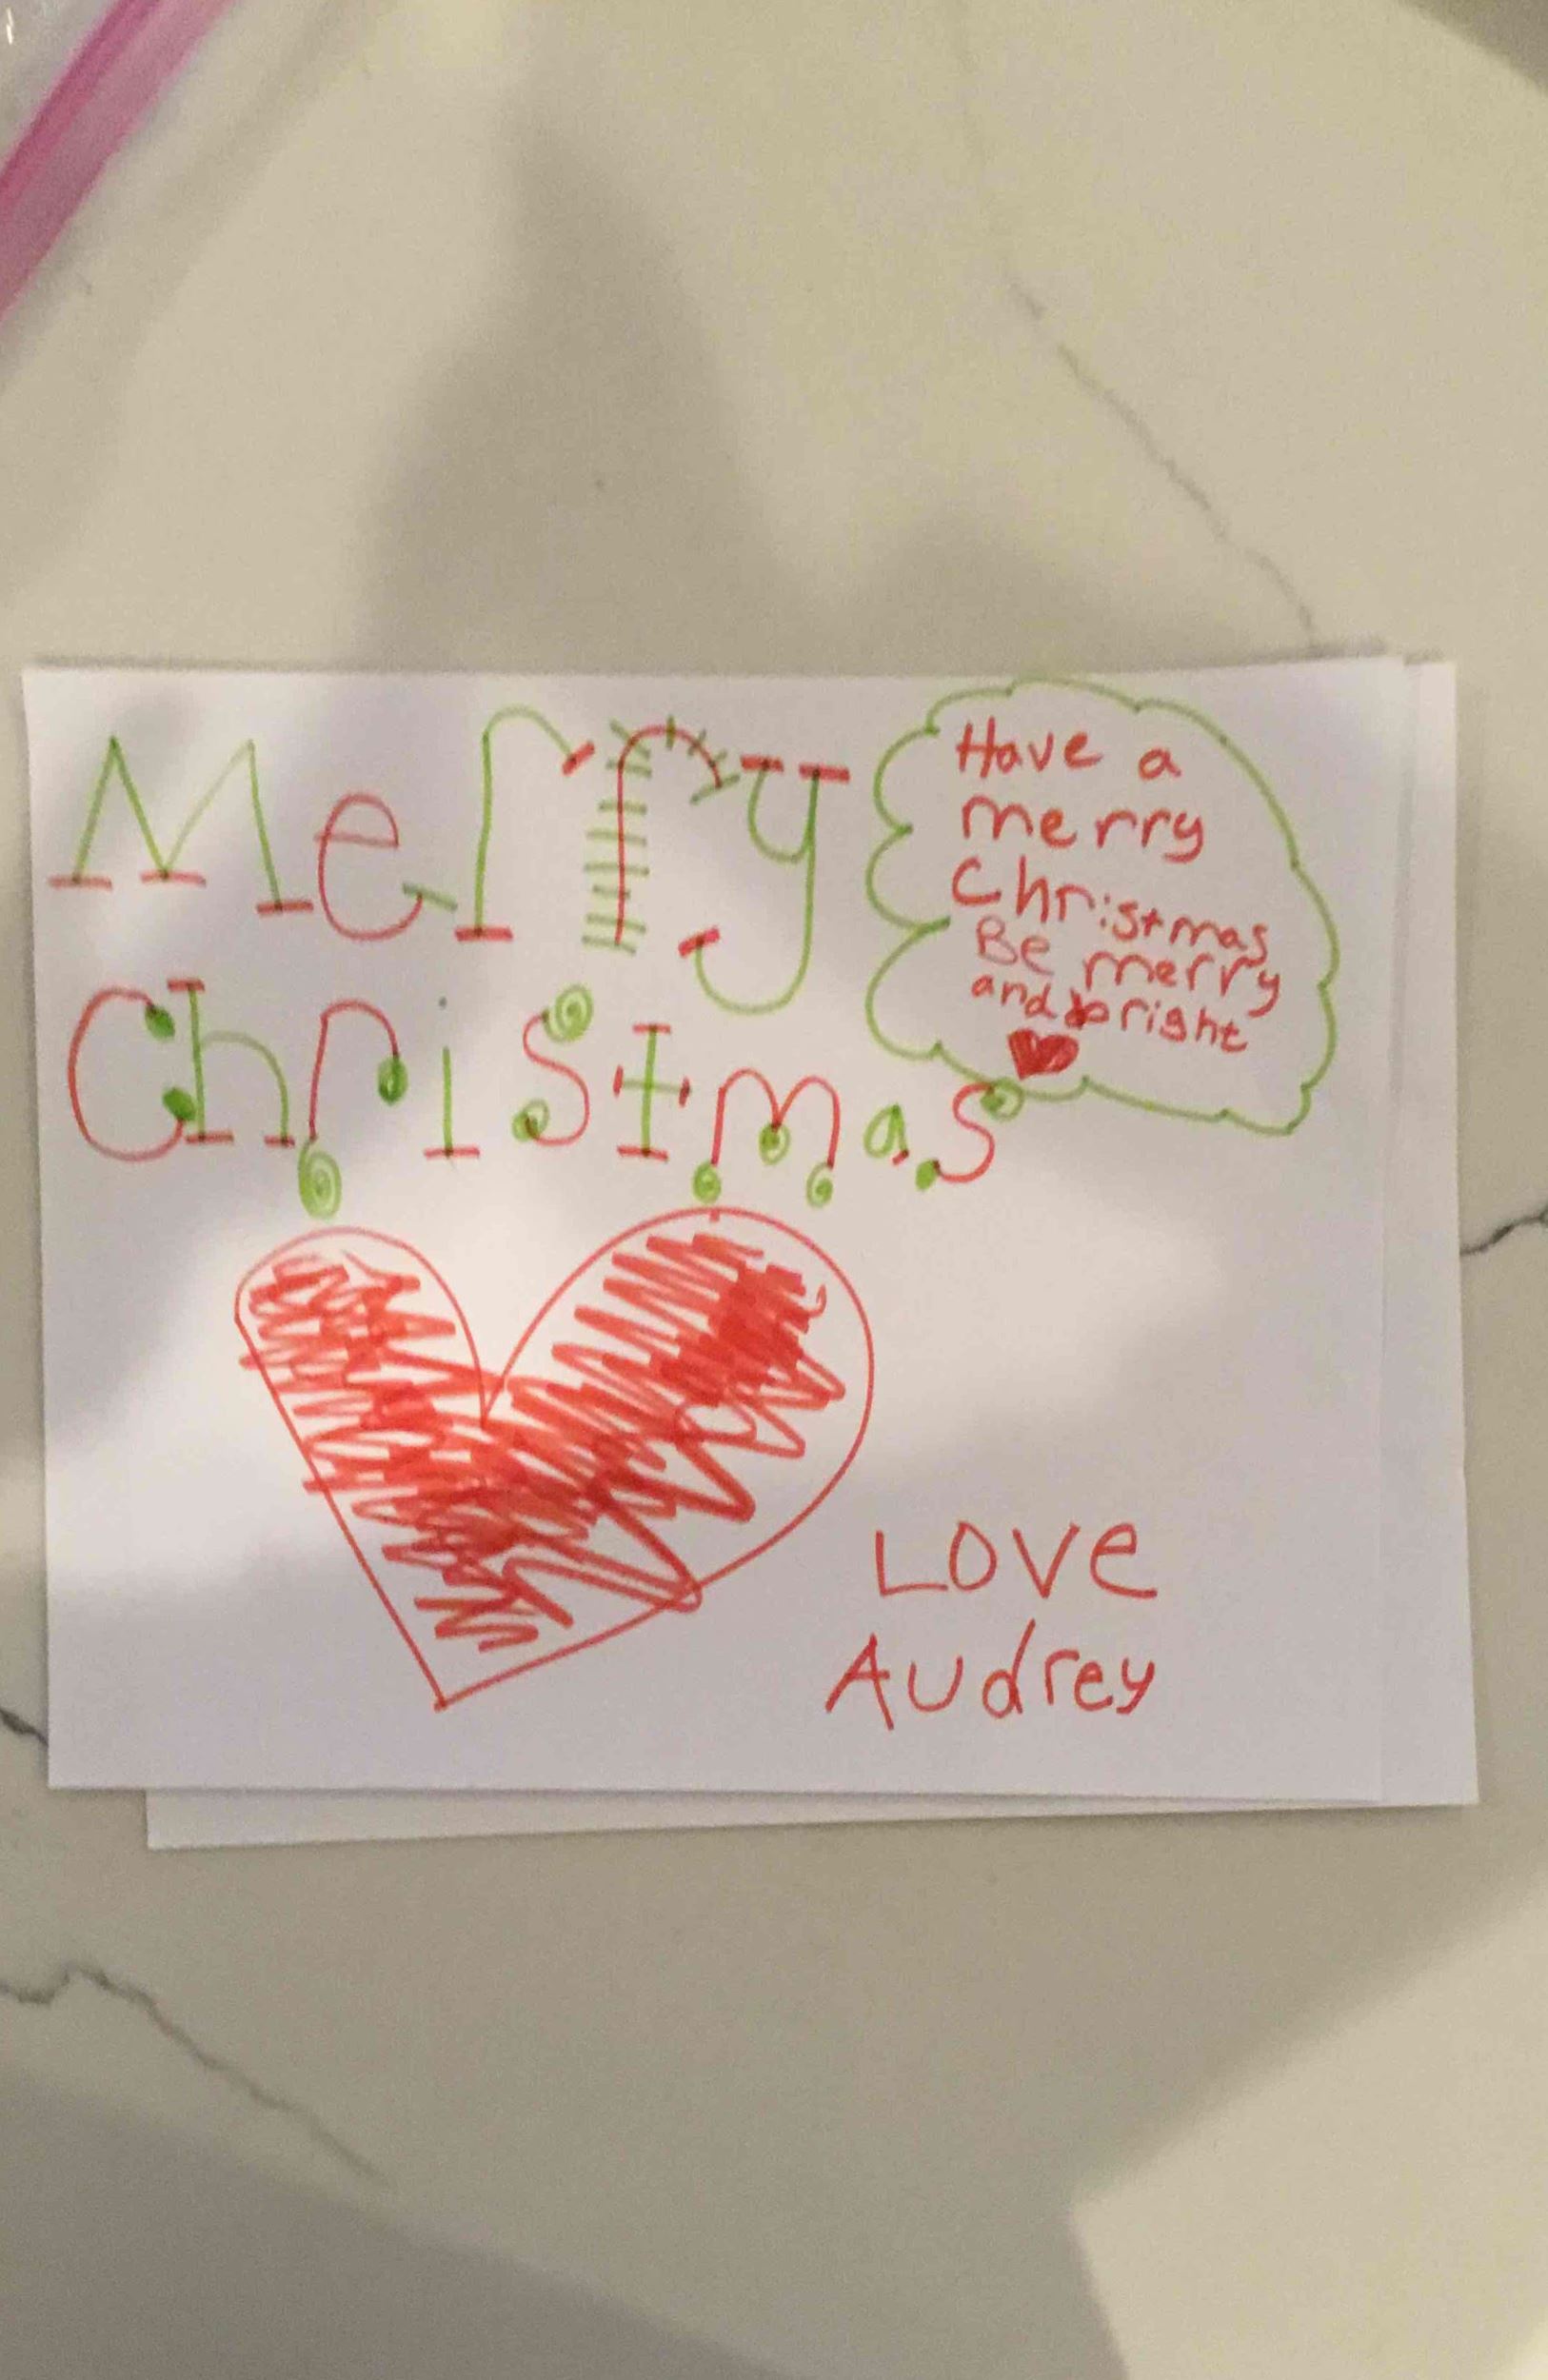 Merry
Christmas
Have a
merry
Christmas
Be merry
and bright
Love
Audrey